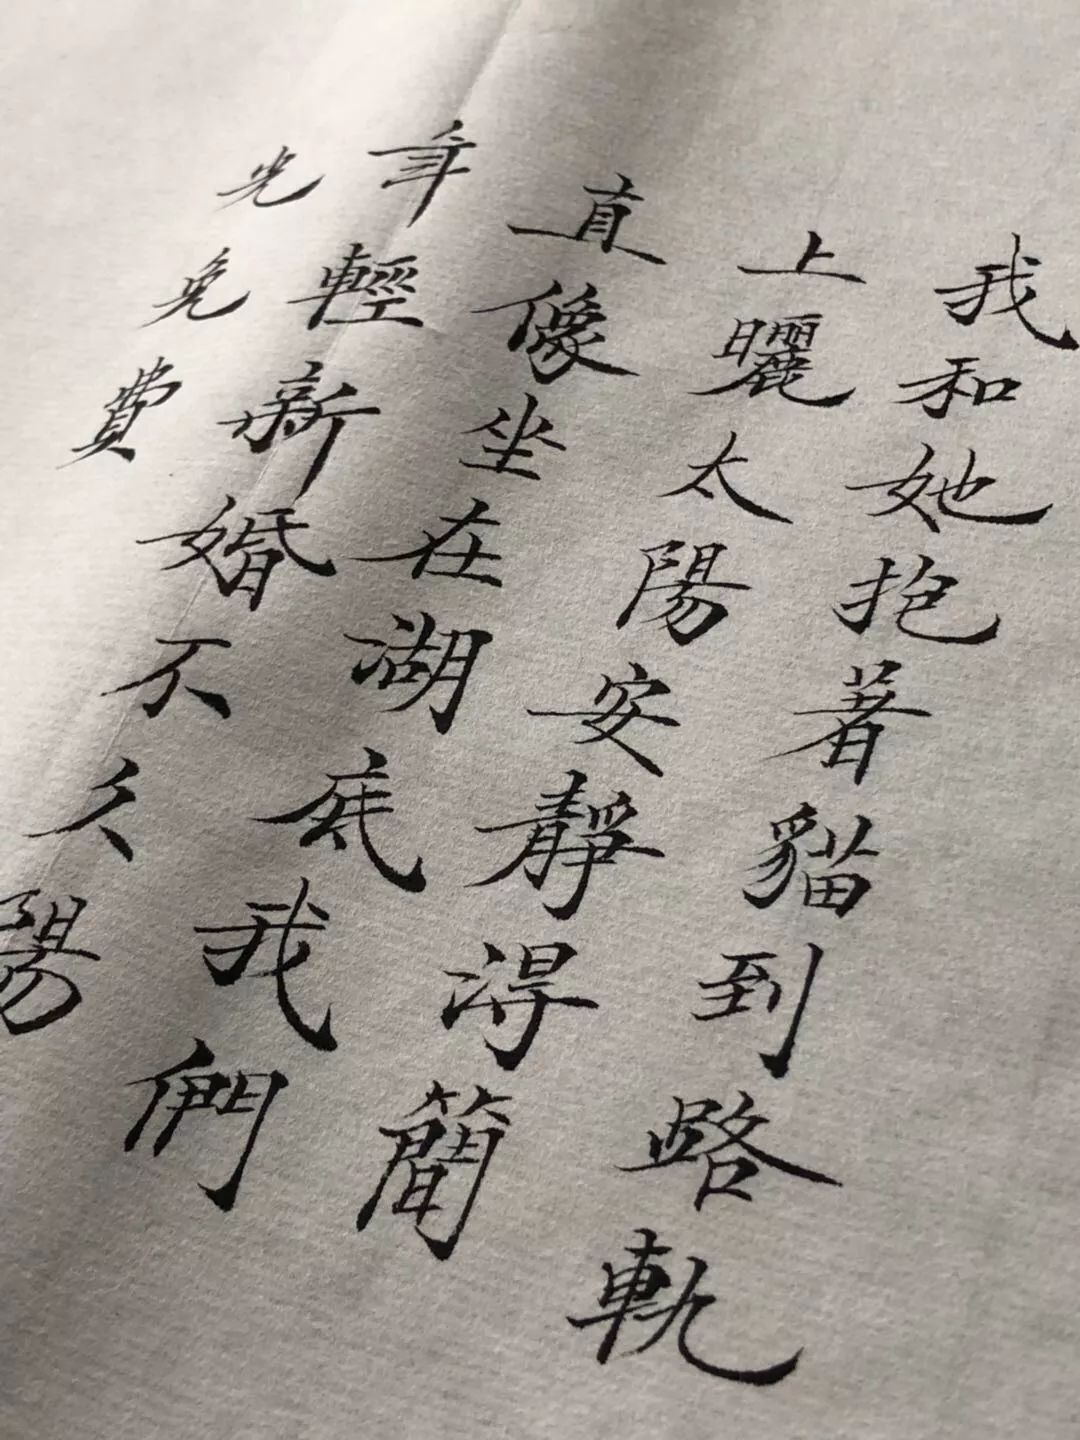 我和她抱著貓到路軌
上曬太陽安靜得簡
直像坐在湖底我們
年輕新婚不久陽
光免費